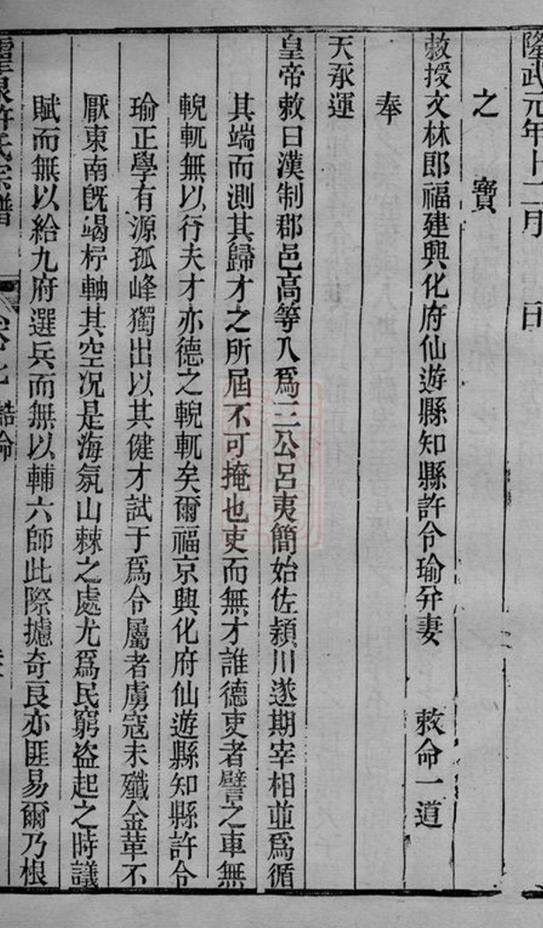 隆武元年十二月　日
之寶
敕授文林郎福建興化府仙遊縣知縣許令瑜幷妻　敕命一道
奉
天承運
皇帝敕曰漢制郡邑高等入爲三公呂夷簡始佐穎川遂期宰相並爲循
其端而測其歸才之所屆不可掩也吏而無才誰德吏者譬之車無
輗軏無以行夫才亦德之輗軏矣爾福京興化府仙遊縣知縣許令
瑜正學有源孤峰獨出以其健才試于爲令屬者虜寇未殲金革不
厭東南旣竭杼軸其空况是海氛山棘之處尤爲民窮盜起之時議
賦而無以給九府選兵而無以輔六師此際攄奇良亦匪易爾乃根
許氏宗譜
誥命